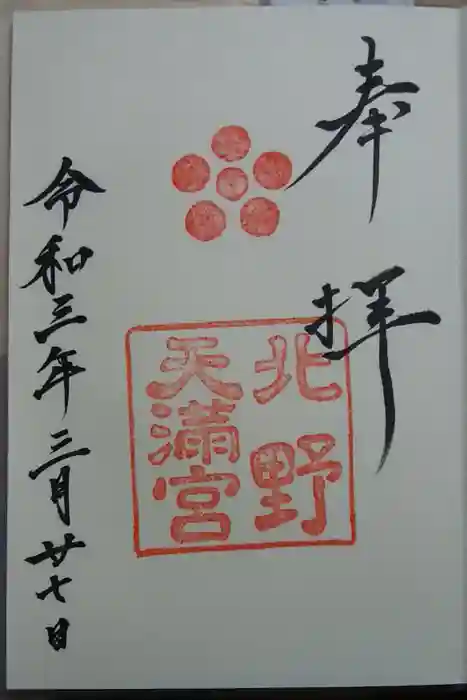 奉拝
北野
天満宮
令和三年三月廿七日